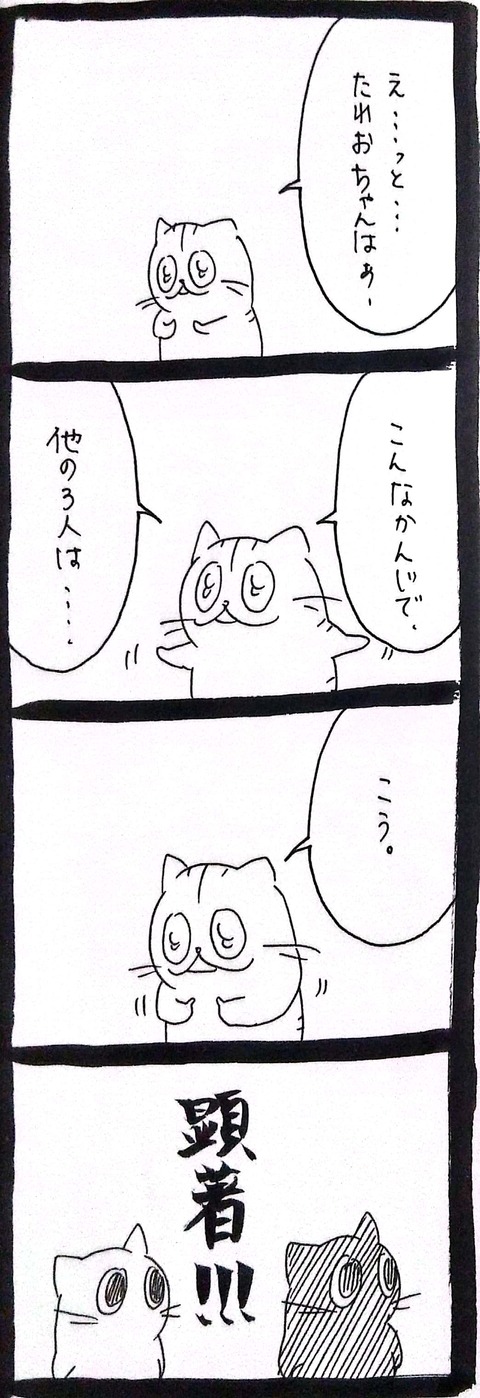 え・・・っと・・・
たれおちゃんはぁ、
こんなかんじで、
他の3人は・・・・
こう。
顕著!!!